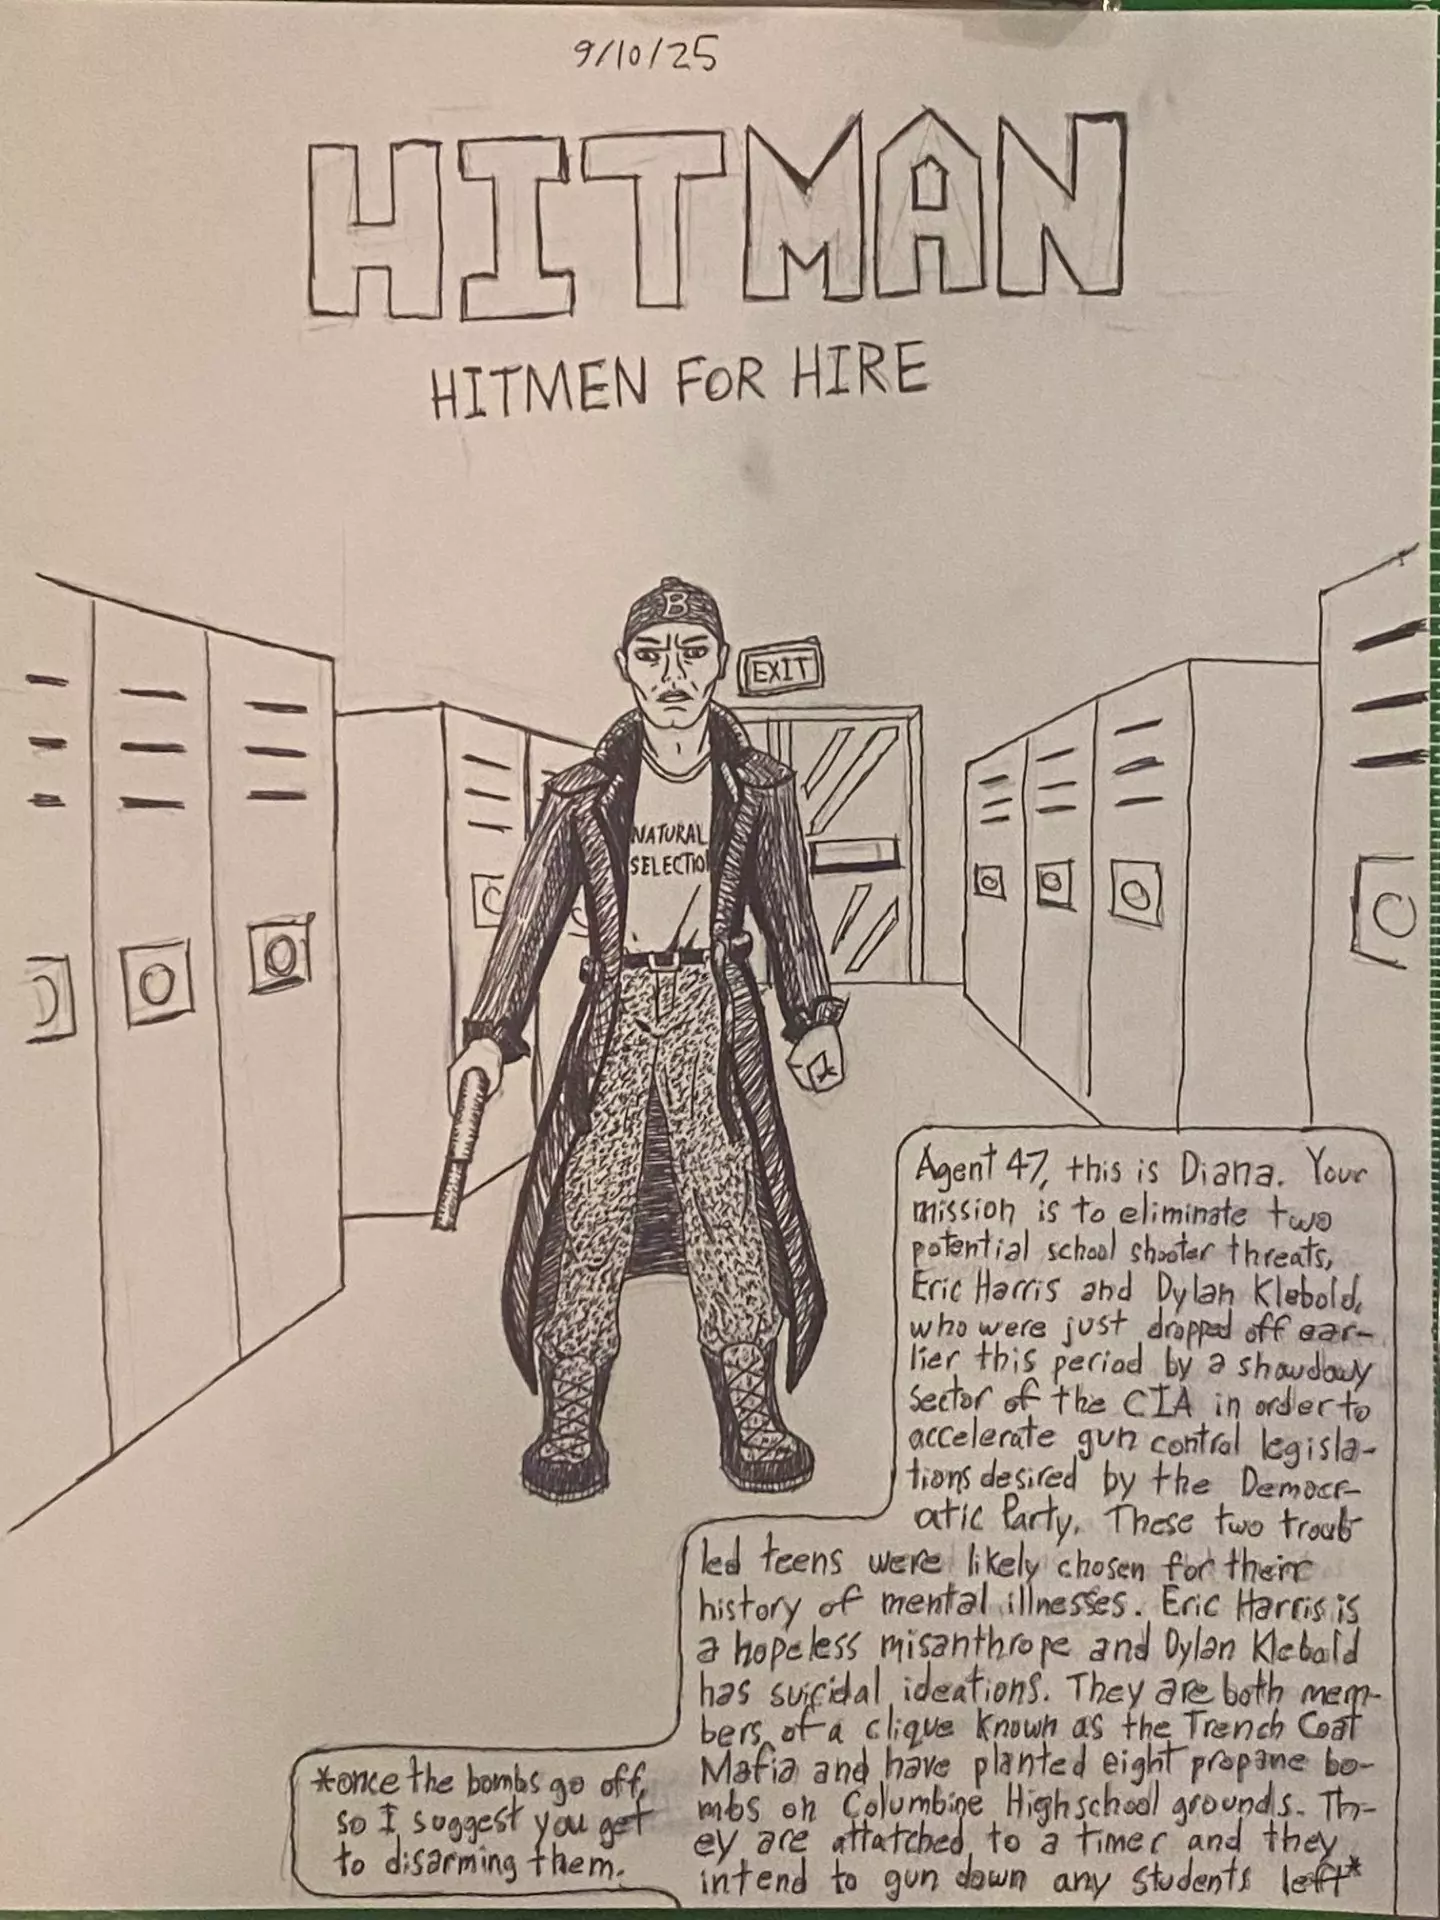 9/10/25
HITMAN
HITMEN FOR HIRE
B
EXIT
NATURAL
SELECTIO
Agent 47, this is Diana. Your
mission is to eliminate two
potential school shooter threats,
Eric Harris and Dylan Klebold,
who were just dropped off ear-
lier this period by a showdowy
sector of the CIA in order to
accelerate gun control legisla-
tions desired by the Democr-
atic Party. These two troub
led teens were likely chosen for their
history of mental illnesses. Eric Harris is
a hopeless misanthrope and Dylan Klebold
has suicidal ideations. They are both mem-
bers of a clique known as the Trench Coat
Mafia and have planted eight propane bo-
mbs on Columbine Highschool grounds. Th-
ey are attatched to a timer and they
intend to gun down any students left*
*once the bombs go off,
so I suggest you get
to disarming them.